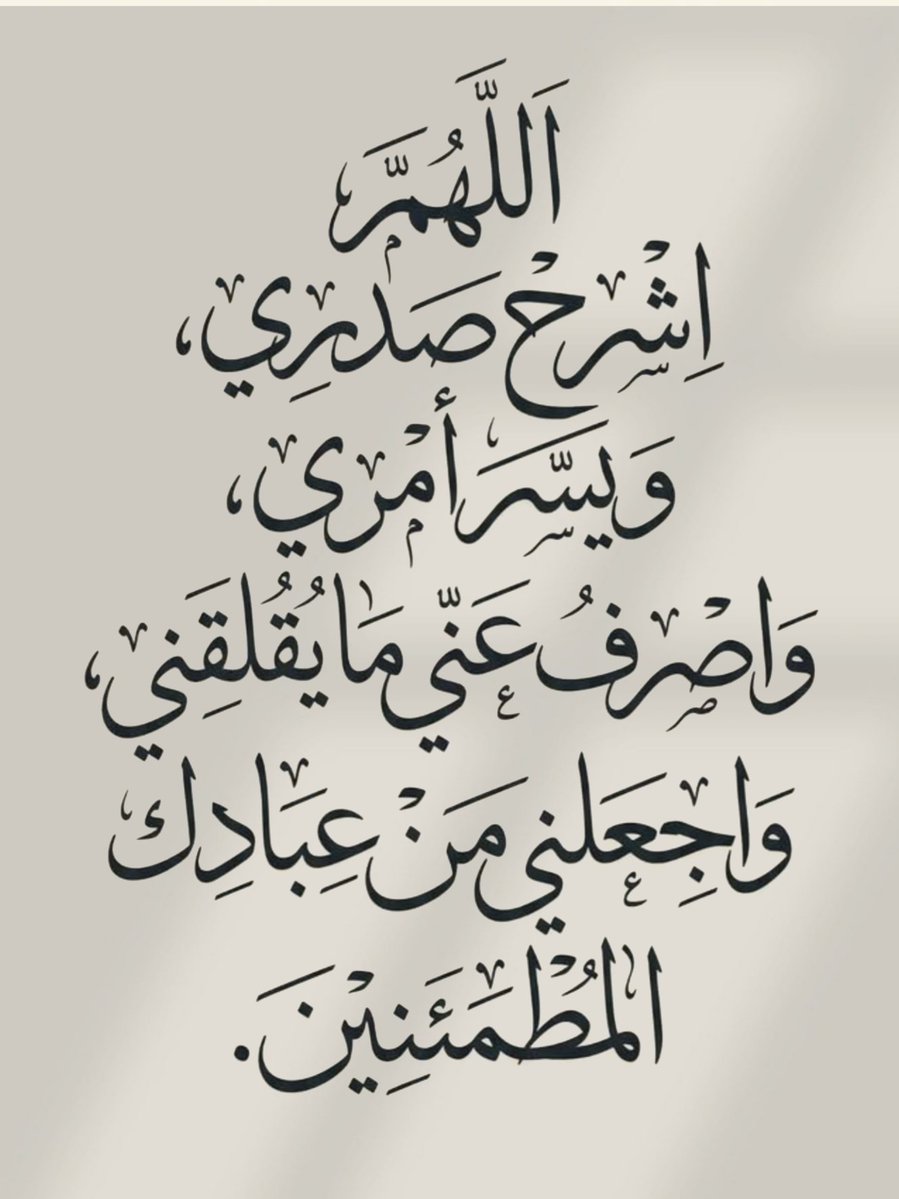 اَللَّهُمَّ
اِشْرحْ صَدرِي،
وَيسَّر أمْري،
وَاصْرفُ عَنّي مَا يُقُلِقَني،
وَاجِعَلني مَنْ عِبَادِك
المُطْمَئَنِيْنَ.